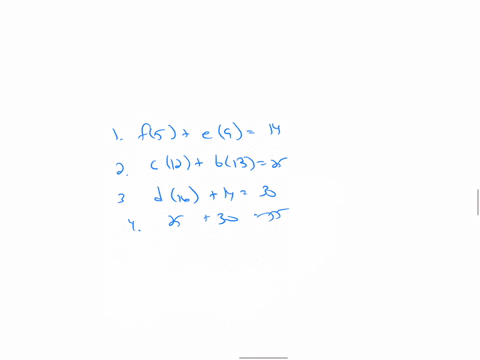 1. f(5) + e(9) = 14
2. c(12) + b(13) = 25
3 d(16) + 14 = 30
4. 25 + 30 = 55